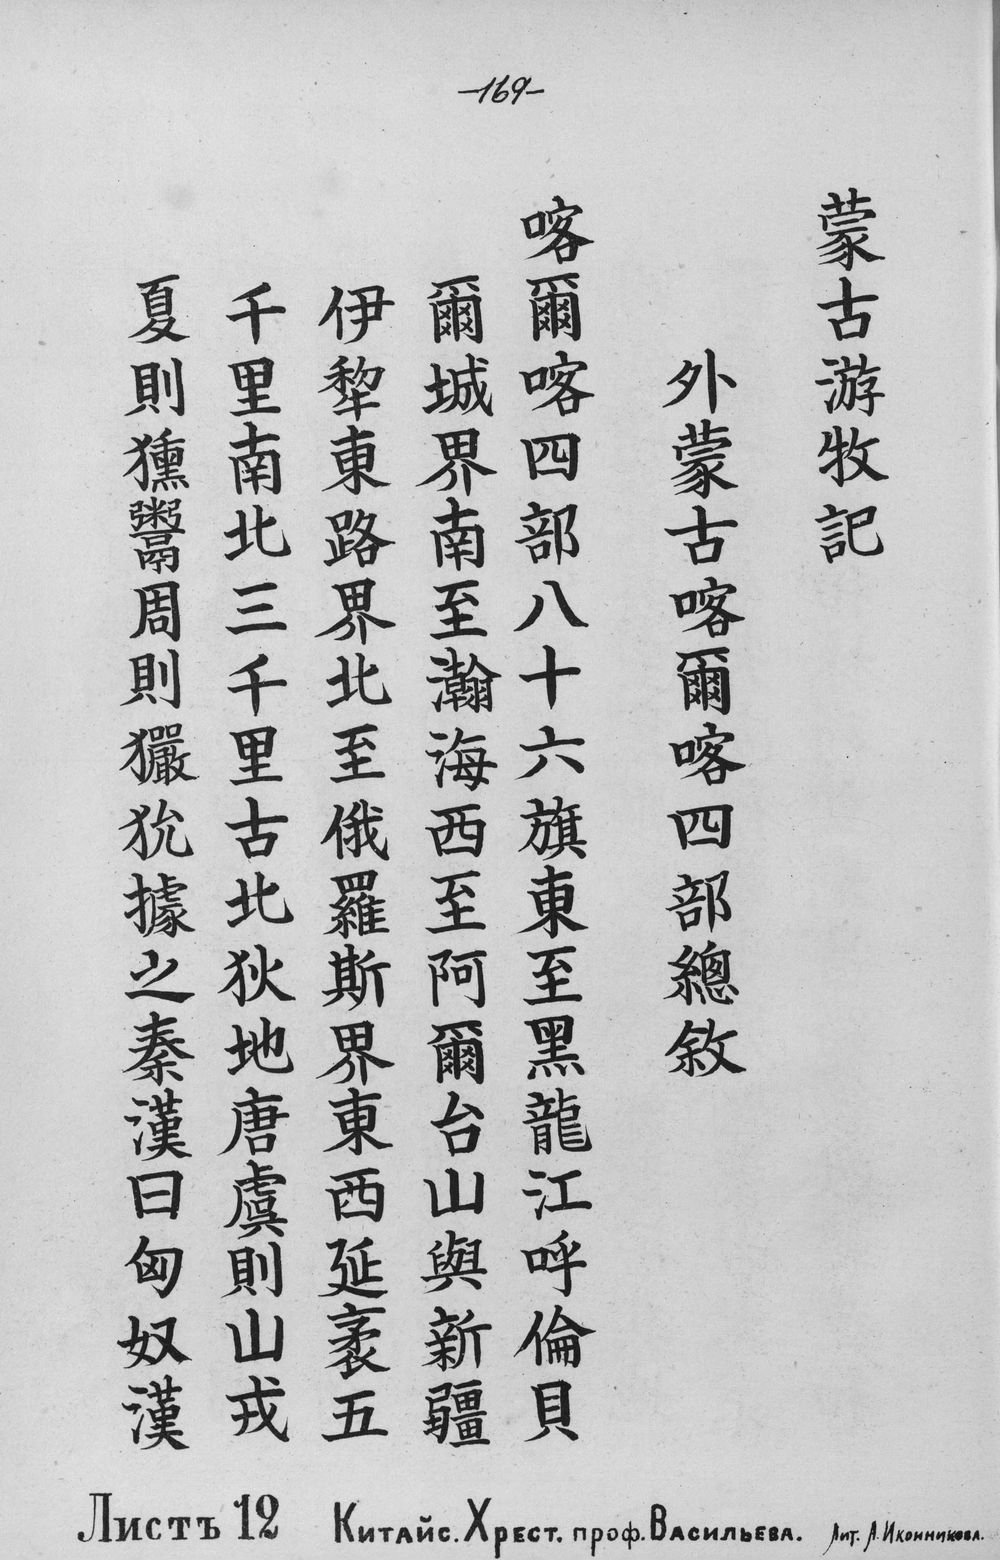 -169-
蒙古游牧記
外蒙古喀爾喀四部總敘
喀爾喀四部八十六旗東至黑龍江呼倫貝
爾城界南至瀚海西至阿爾台山與新疆
伊犂東路界北至俄羅斯界東西延袤五
千里南北三千里古北狄地唐虞則山戎
夏則獯鬻周則玁狁據之秦漢曰匈奴漢
Листъ 12 Китайс. Хрест. проф. Васильева. Лит. А. Иконникова.